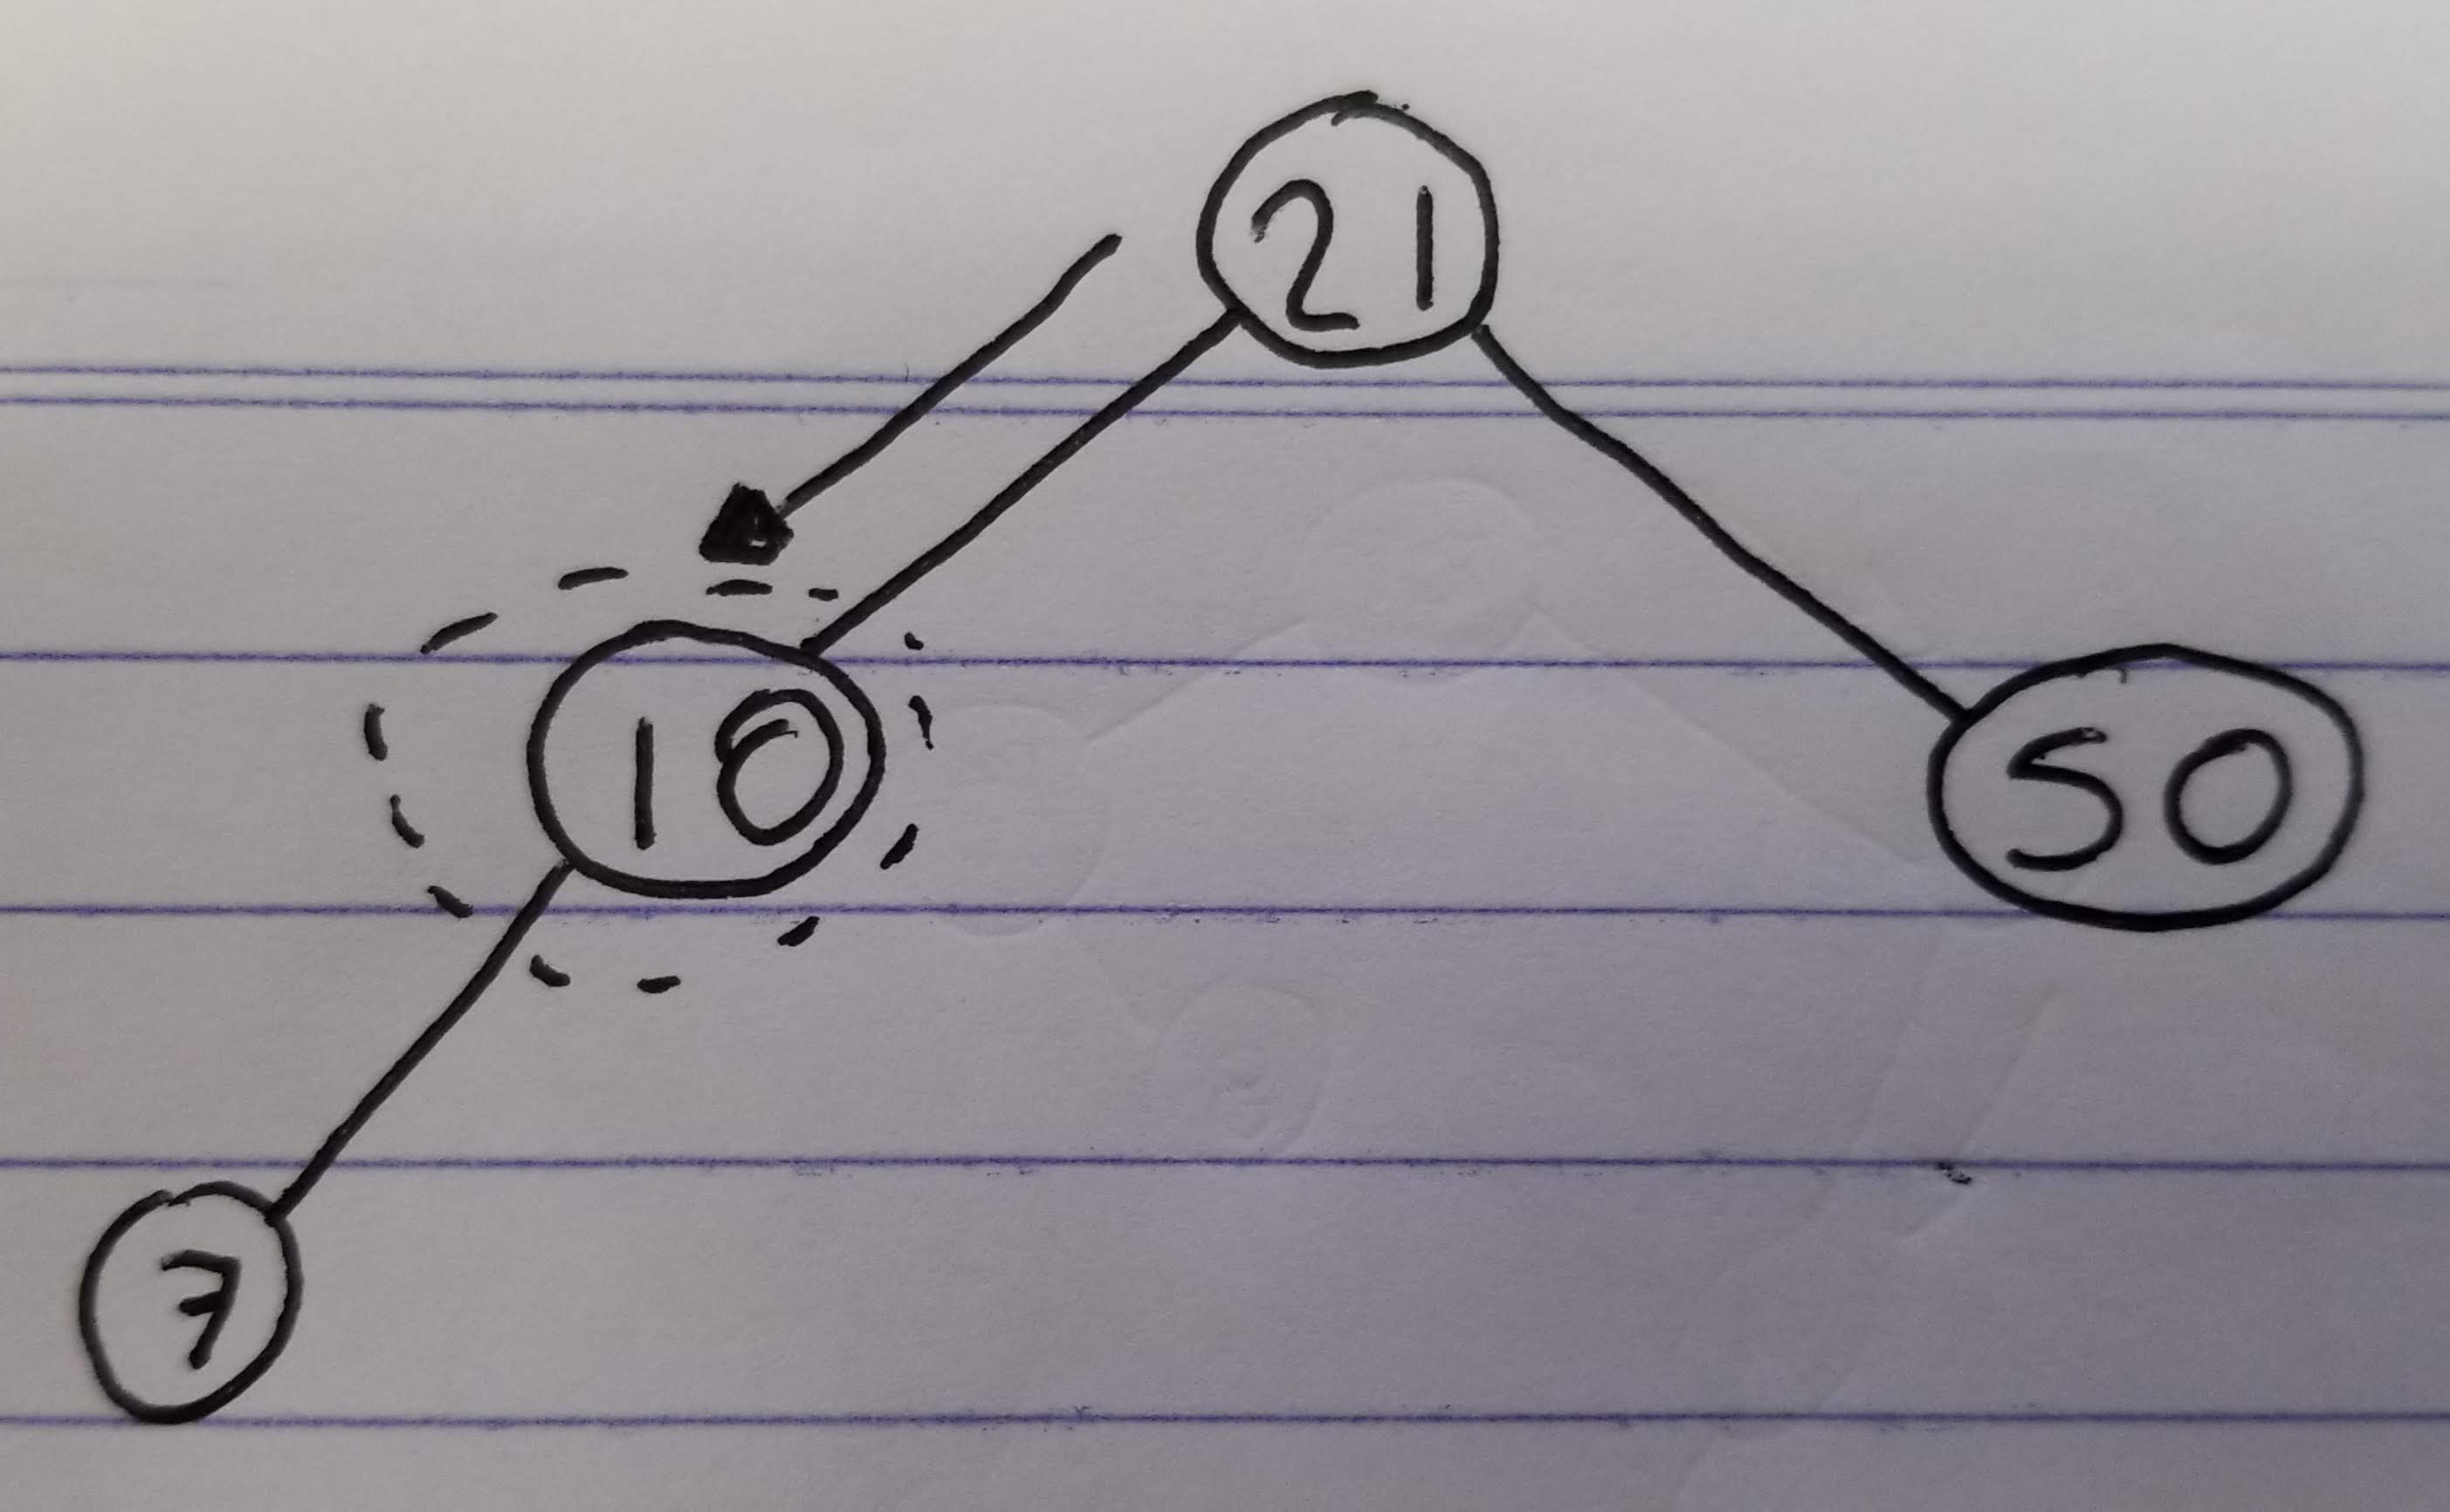 21
10 50
7